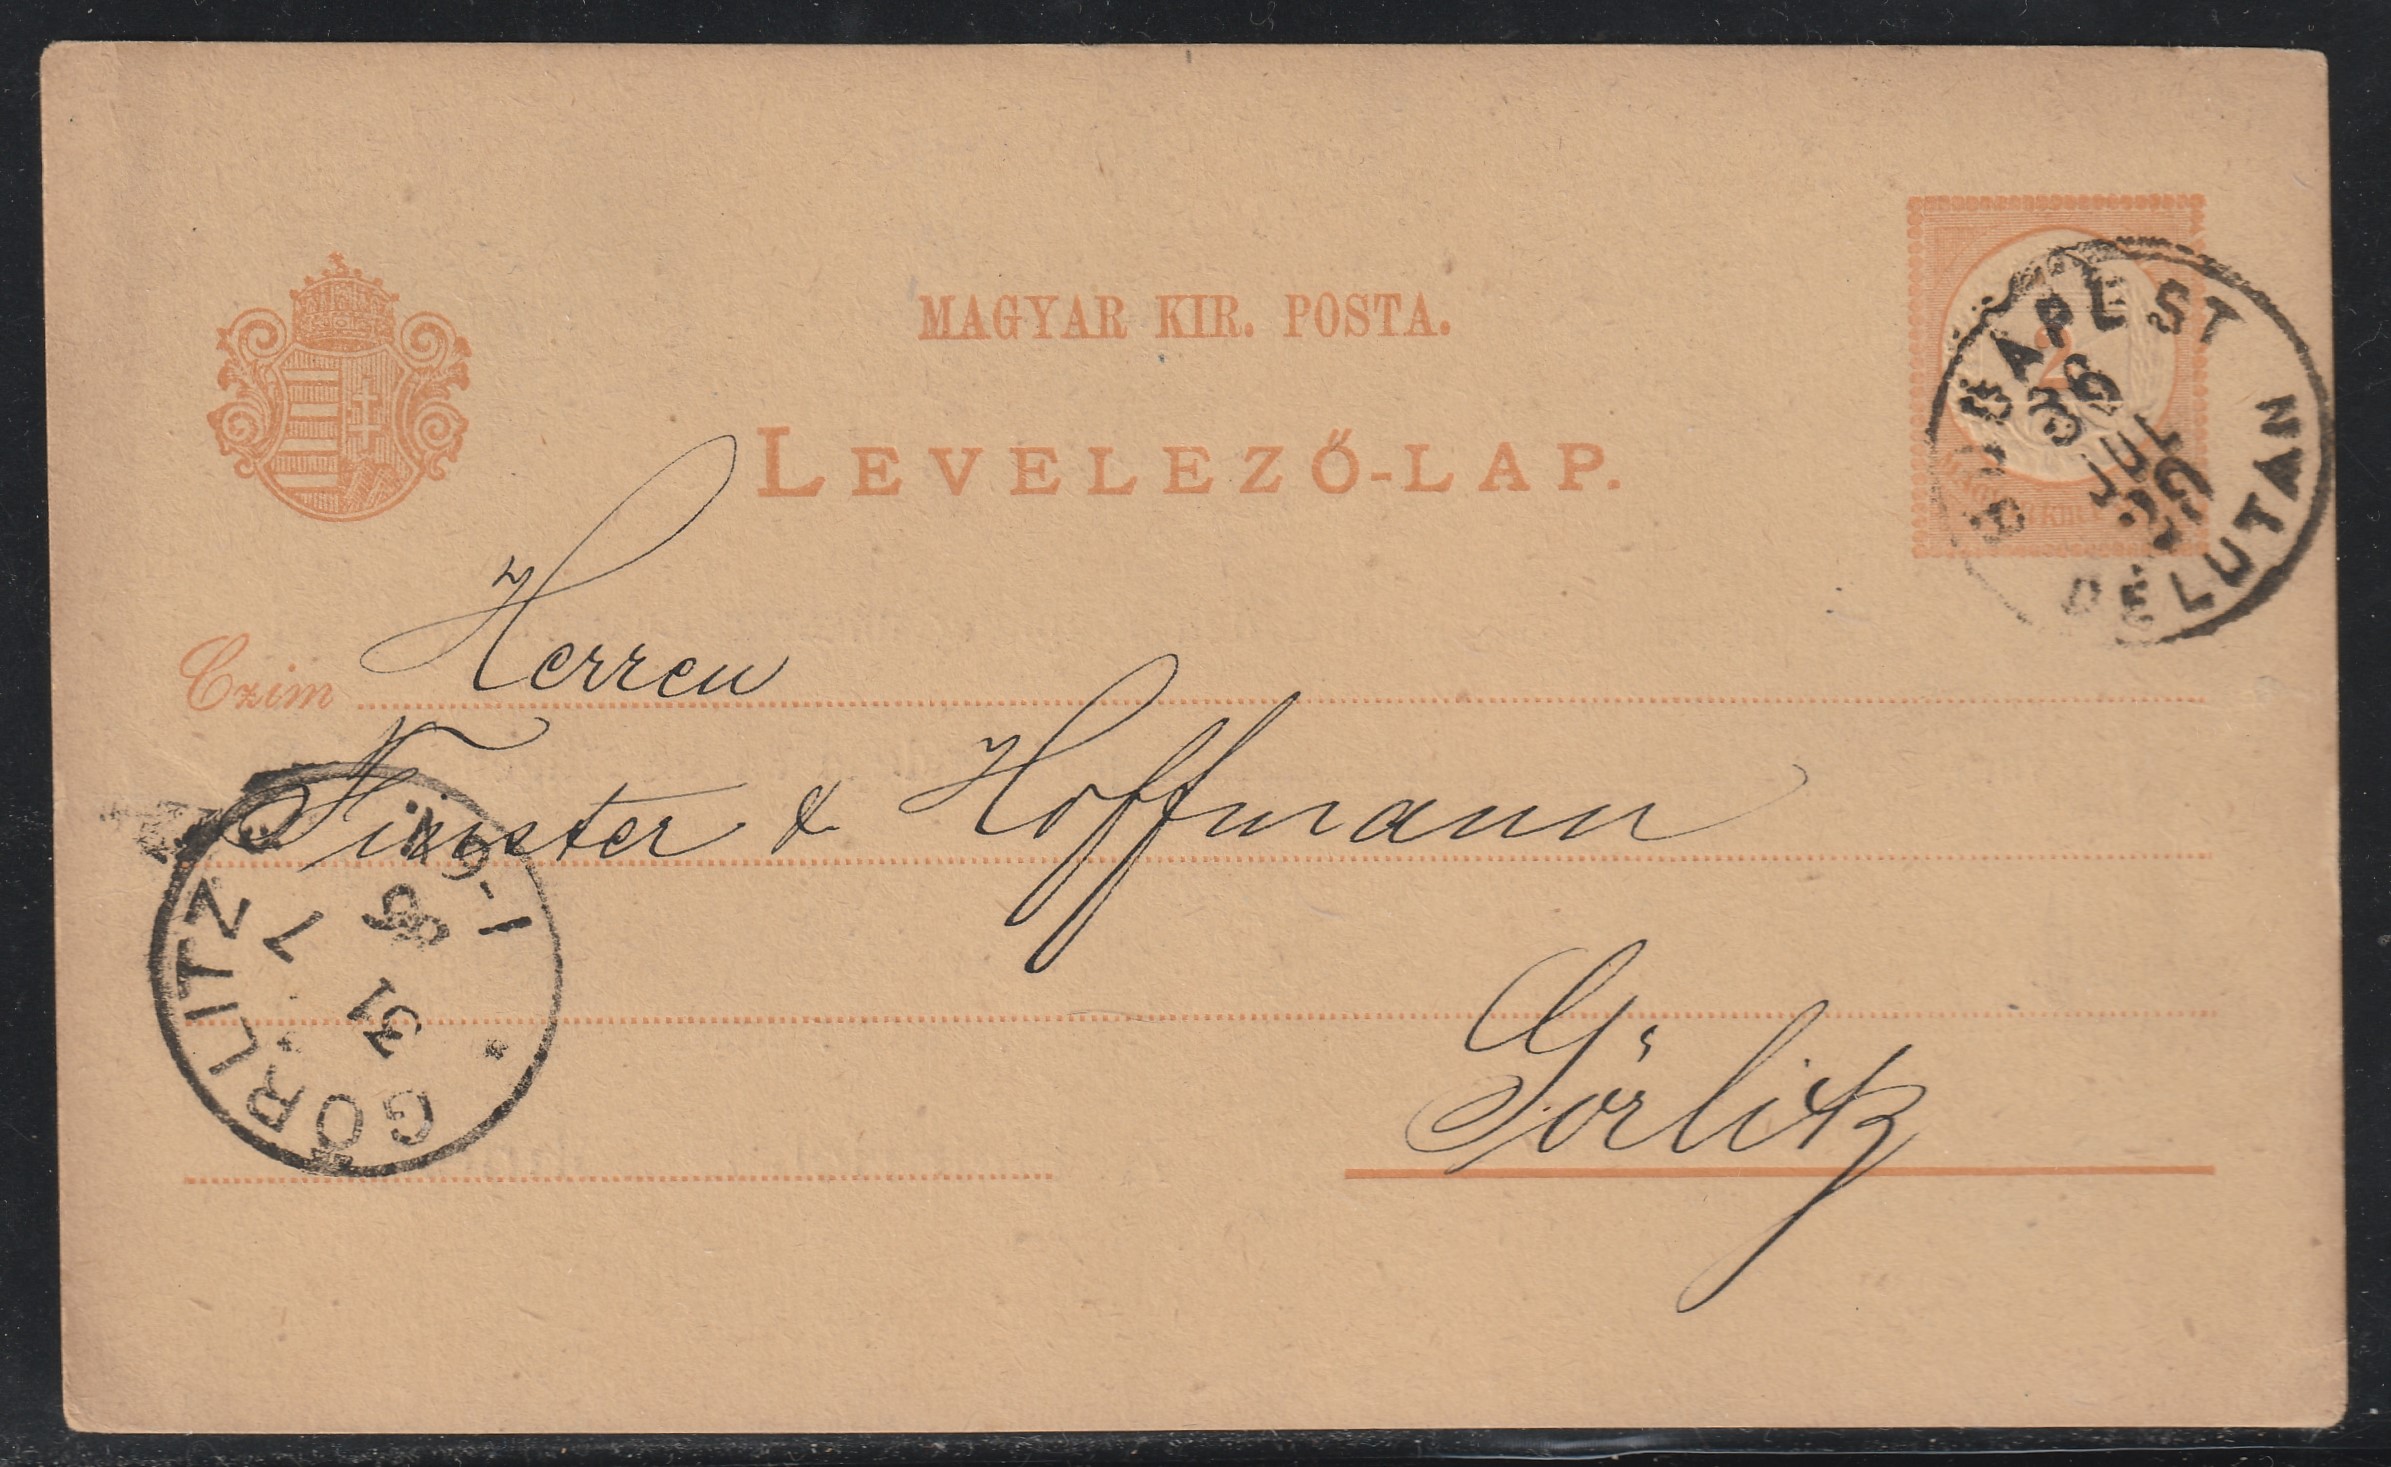 MAGYAR KIR. POSTA.
LEVELEZŐ-LAP.
2
BUDAPEST
86
JUL
29
DELUTAN
Czim
Herren
Finster & Hoffmann
Görlitz
GÖRLITZ
31
7
86